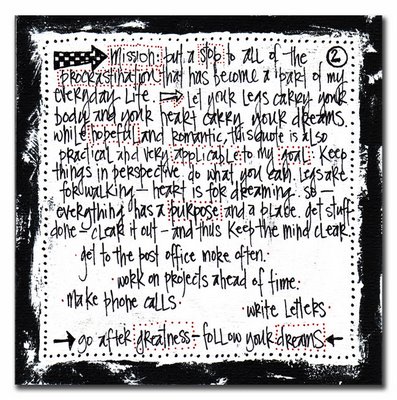 mission: put a stop to all of the 2
procrastination that has become a part of my
everyday life. → let your legs carry your
body and your heart carry your dreams.
while hopeful and romantic, this quote is also
practical and very applicable to my goal. Keep
things in perspective. do what you can. legs are
for walking - heart is for dreaming. so -
everything has a purpose and a place. get stuff
done - clear it out - and thus keep the mind clear.
get to the post office more often.
work on projects ahead of time.
make phone calls.
write letters.
→ go after greatness - follow your dreams ←